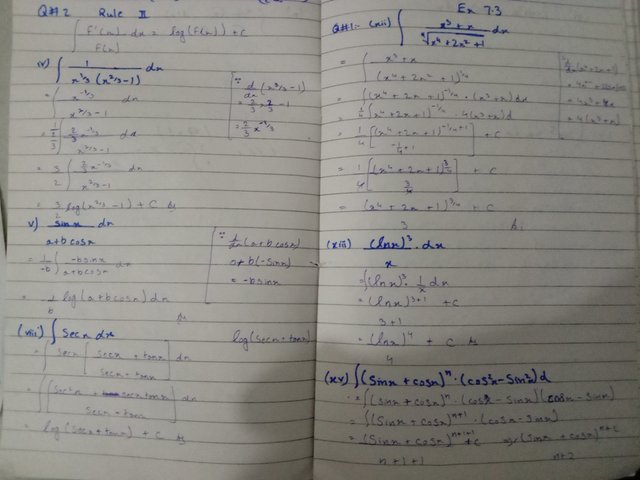 Q#2 Rule II
∫ F'(x)/F(x) dx = log(F(x)) + C
v) ∫ 1/(x^1/3 (x^2/3 - 1)) dx
= ∫ x^-1/3/(x^2/3 - 1) dx
∵ d/dx (x^2/3 - 1)
= 2/3 x^2/3 - 1
= 2/3 x^-1/3
= 1/(2/3) ∫ 2/3 x^-1/3/(x^2/3 - 1) dx
= 3/2 ∫ 2/3 x^-1/3/(x^2/3 - 1)
= 3/2 log(x^2/3 - 1) + C
v) sinx/(a+bcosx) dx
= 1/-b ∫ -bsinx/(a+bcosx) dx
= -1/b log(a+bcosx) dx
∵ d/dx (a+bcosx)
0+b(-sinx)
= -bsinx
(viii) ∫ Secx dx
log(secx+tanx)
= ∫ secx [secx + tanx/secx+tanx] dx
= ∫ [sec²x + secx tanx/secx+tanx] dx
= log(secx+tanx) + C
Ex 7.3
Q#1:- (xii) ∫ (x³+x)/⁴√(x⁴+2x²+1) dx
= ∫ (x³+x)/(x⁴+2x²+1)^1/4
= ∫(x⁴+2x²+1)^-1/4 . (x³+x)dx
= 1/4 ∫(x⁴+2x+1)^-1/4 . 4(x³+x)d
= 1/4 [(x⁴+2x+1)^-1/4+1/(-1/4+1)] + C
= 1/4 [(x⁴+2x+1)^3/4/(3/4)] + C
= (x⁴+2x+1)^3/4/3 + C
d/dx(x⁴+2x²+1)
= 4x³+4x
= 4(x³+x)
(xiii) (lnx)³/x . dx
= ∫(lnx)³ . 1/x dx
= (lnx)^3+1/(3+1) + C
= (lnx)⁴/4 + C
(xv) ∫(Sinx+cosx)ⁿ.(cos²x-Sin²x)d
= ∫(Sinx+cosx)ⁿ.(cosx-Sinx)(cosx-Sinx)
= ∫(Sinx+cosx)^n+1 . (cosx-Sinx)
= (Sinx+cosx)^n+1+1/(n+1+1) + C ⇒ (Sinx+cosx)^n+2/(n+2)